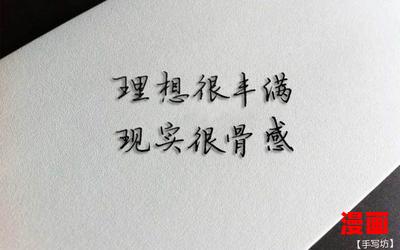 理想很丰满
现实很骨感
漫画
【手写坊】